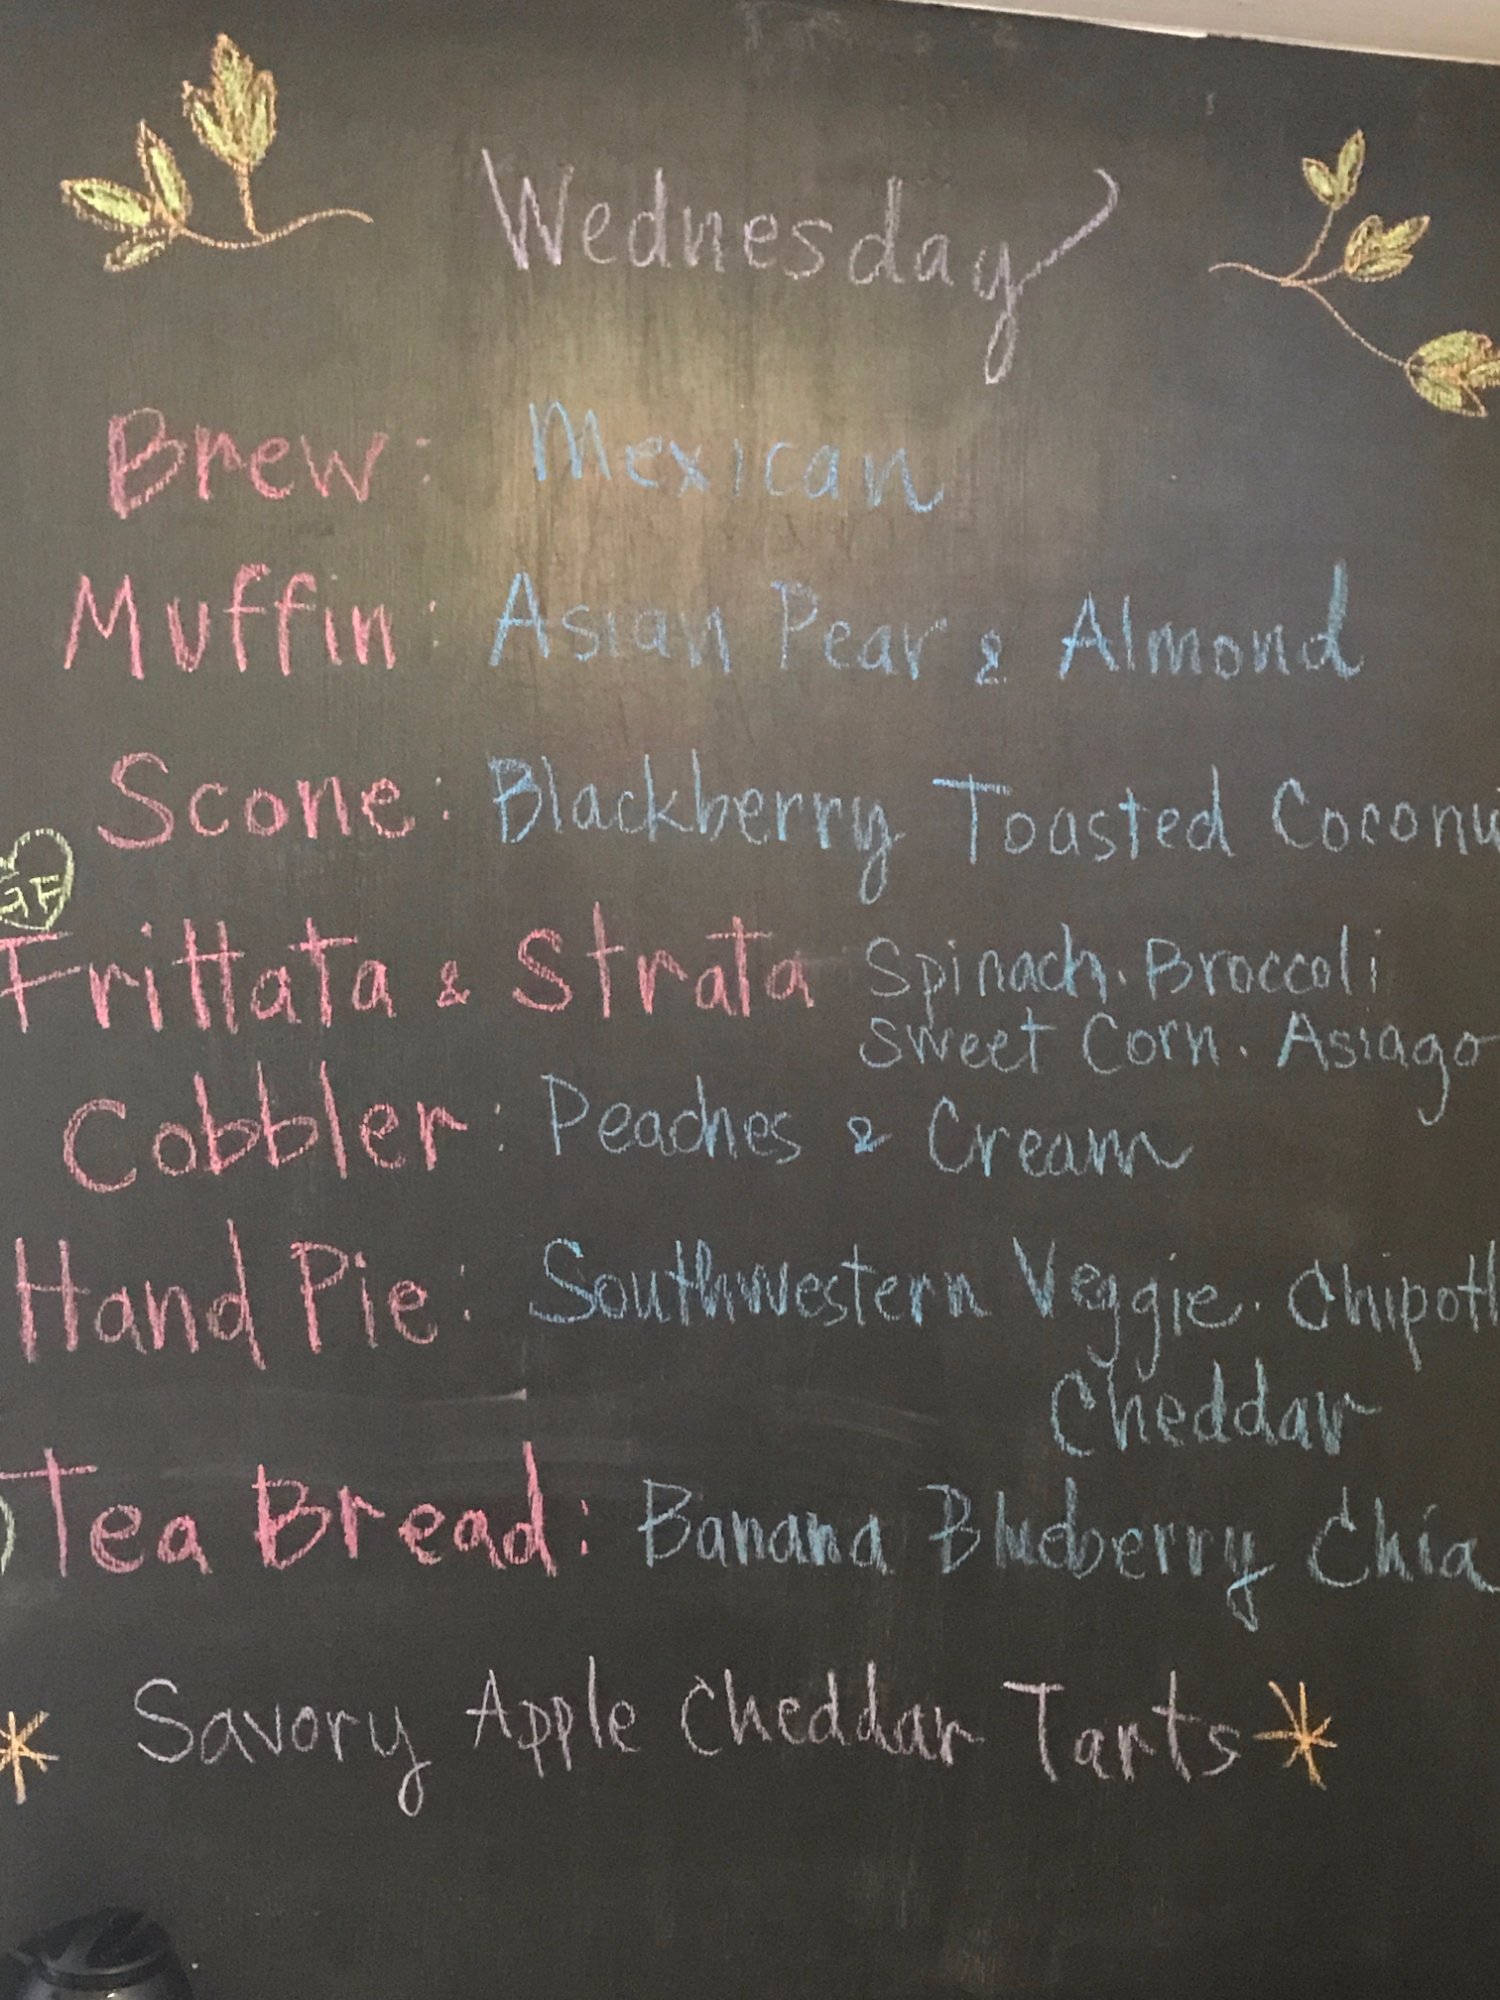 Wednesday
Brew: Mexican
Muffin: Asian Pear & Almond
Scone: Blackberry Toasted Coconu
GF
Frittata & Strata Spinach. Broccoli
Sweet Corn. Asiago
Cobbler: Peaches & Cream
Hand Pie: Southwestern Veggie. Chipotl
Cheddar
Tea Bread: Banana Blueberry Chia
* Savory Apple Cheddar Tarts *